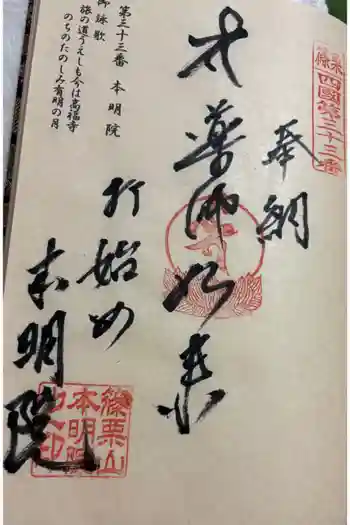 篠栗
四國第三十三番
奉納
本薬師如来
打始め
本明院
第三十三番 本明院
御詠歌
旅の道うえしも今は高福寺
のちのたのしみ有明の月
篠栗山
本明院
之印